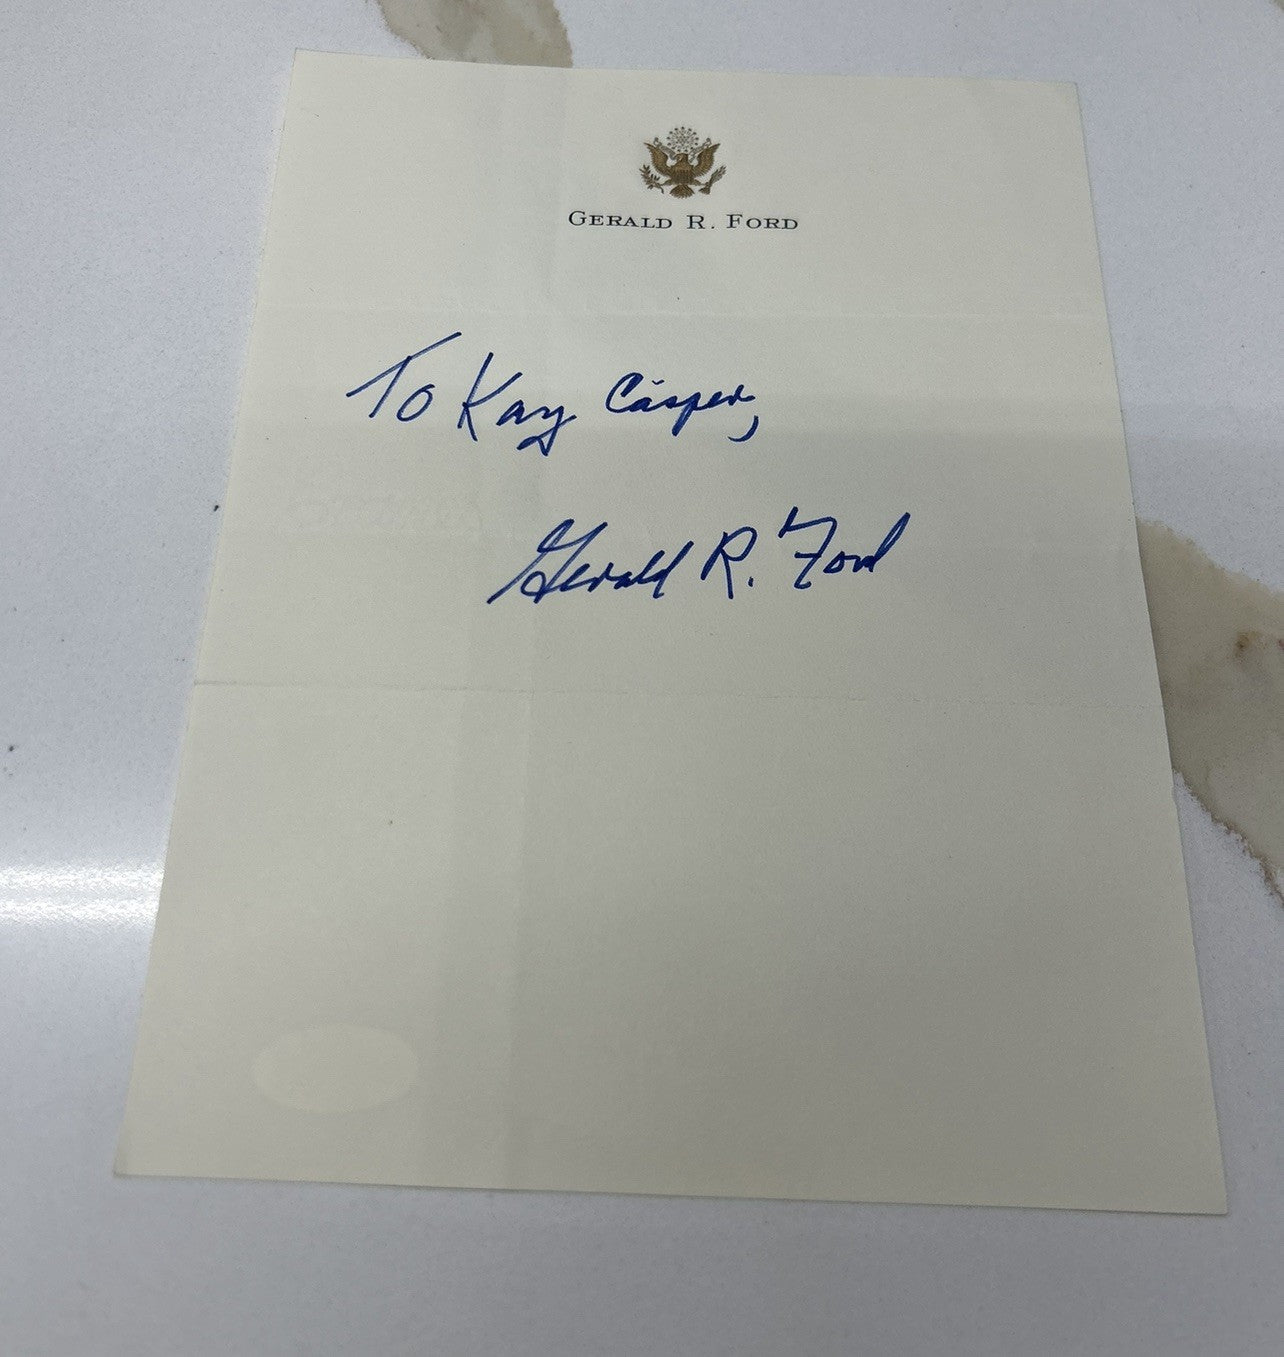 GERALD R. FORD
To Kay Casper,
Gerald R. Ford